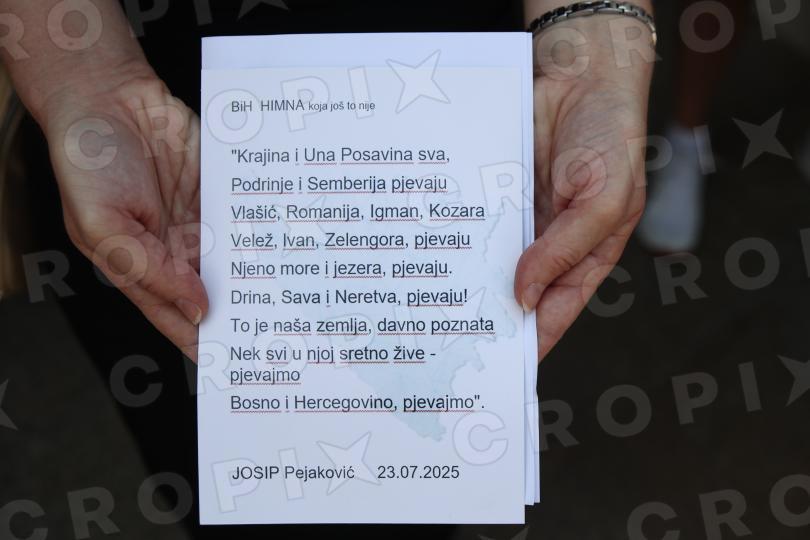 BiH HIMNA koja još to nije
"Krajina i Una Posavina sva,
Podrinje i Semberija pjevaju
Vlašić, Romanija, Igman, Kozara
Velež, Ivan, Zelengora, pjevaju
Njeno more i jezera, pjevaju.
Drina, Sava i Neretva, pjevaju!
To je naša zemlja, davno poznata
Nek svi u njoj sretno žive -
pjevajmo
Bosno i Hercegovino, pjevajmo".
JOSIP Pejaković 23.07.2025
CROPIX